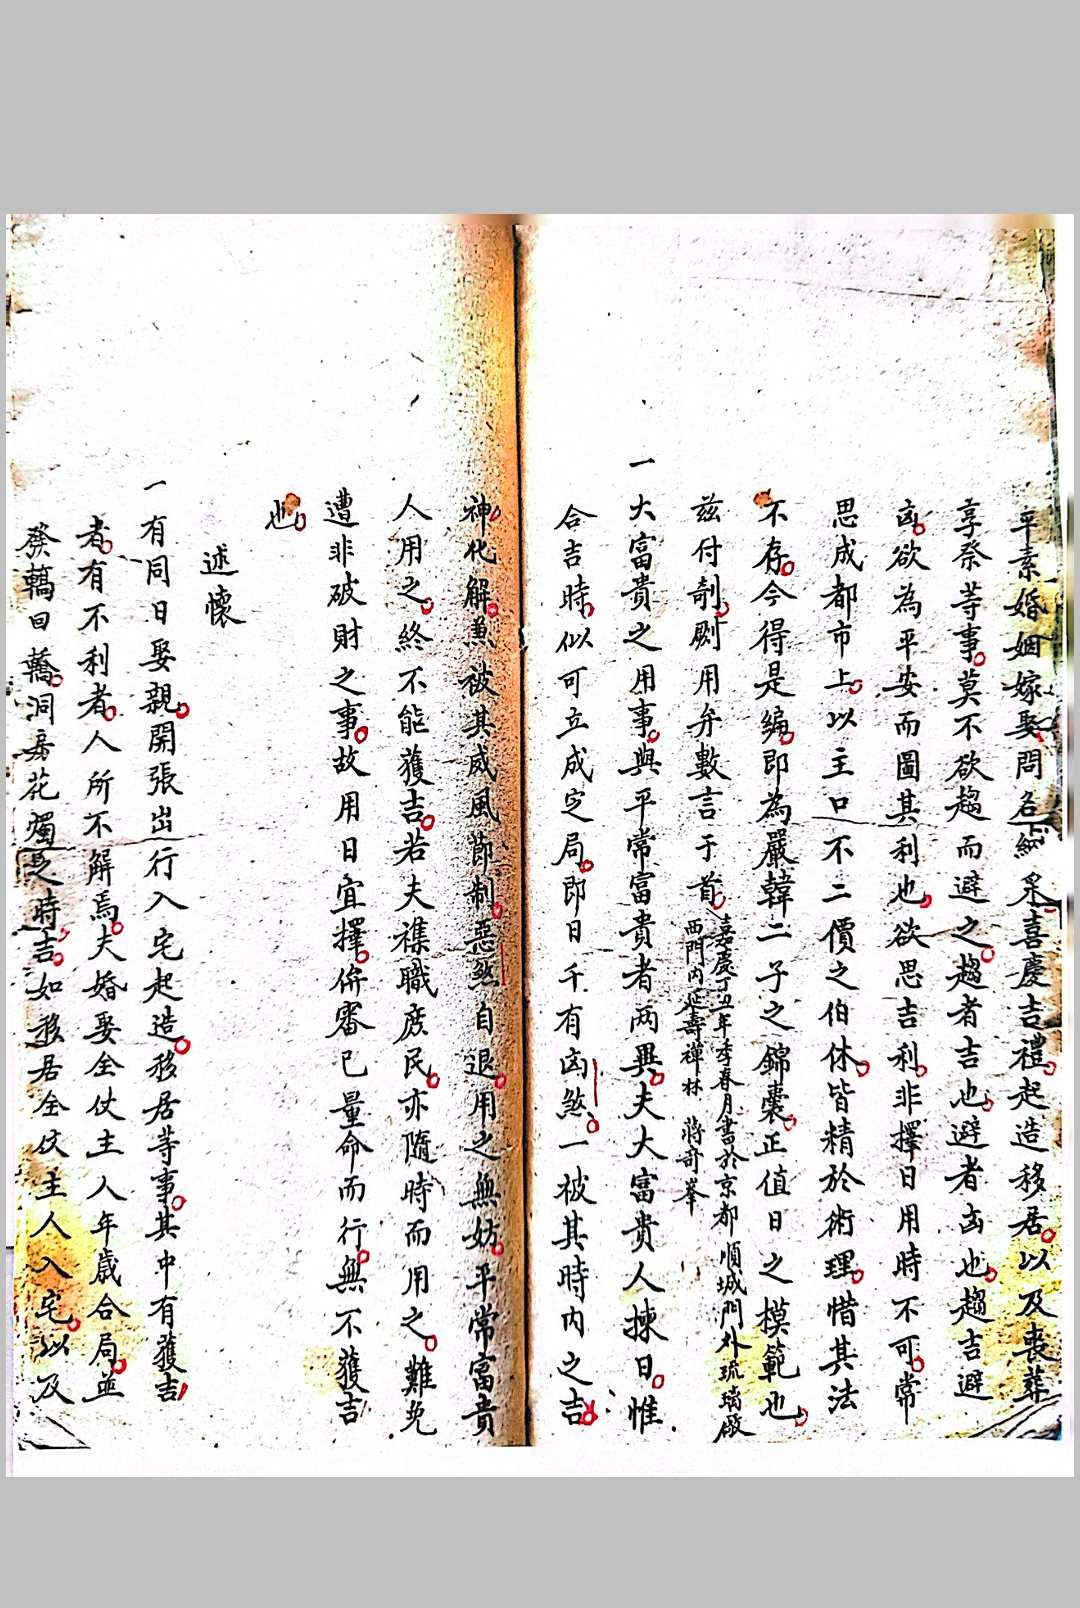 平素婚姻嫁娶問名納采喜慶吉禮起造移居以及喪葬
享祭等事莫不欲趨而避之趨者吉也避者凶也趨吉避
凶欲為平安而圖其利也欲思吉利非擇日用時不可常
思成都市上以主口不二價之伯休皆精於術理惜其法
不存今得是編即為嚴韓二子之錦囊正值日之模範也
茲付剞劂用弁數言于首
嘉慶丁丑年季春月書於京都順城門外琉璃廠
西門內延壽禪林 蔣奇峯
一大富貴之用事與平常富貴者兩異夫大富貴人揀日惟
合吉時似可立成定局即日千有凶煞一被其時內之吉
神化解兼被其威風節制惡煞自退用之無妨平常富貴
人用之終不能獲吉若夫襍職庶民亦隨時而用之難免
遭非破財之事故用日宜擇俻審已量命而行無不獲吉
也
述懷
一有同日娶親開張出行入宅起造移居等事其中有獲吉
者有不利者人所不解焉夫婚娶全仗主人年歲合局並
發轎回轎洞房花燭之時吉如移居全仗主人入宅以及